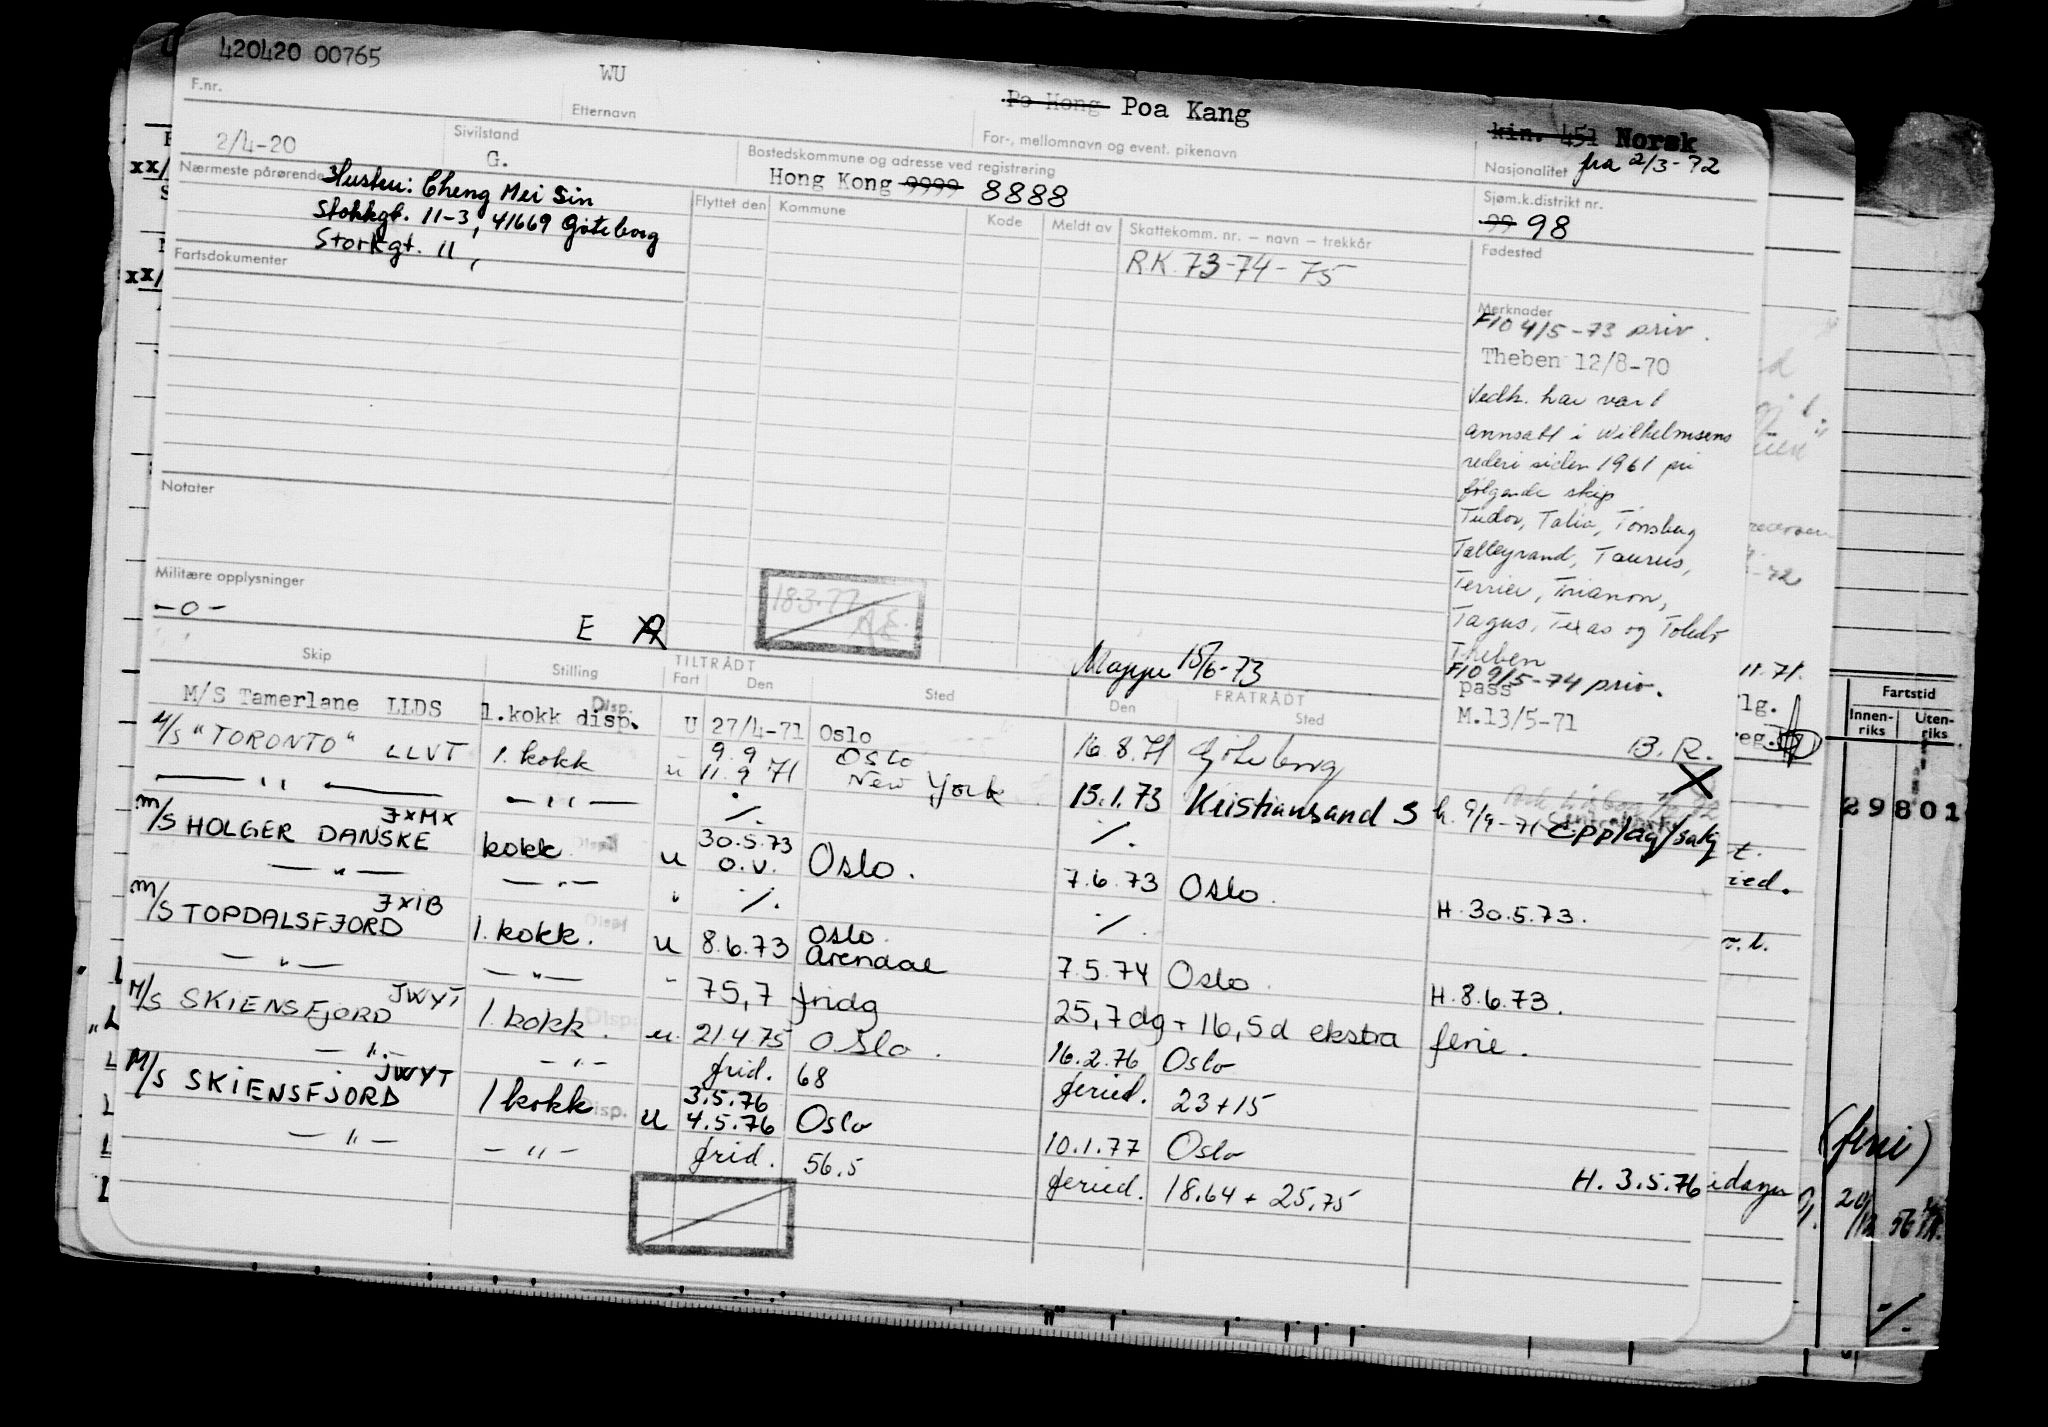 420420 00765
WU
Po Hong Poa Kang
kin. 451 Norsk
F.nr.
Etternavn
For-, mellomnavn og event. pikenavn
Nasjonalitet fra 2/3-72
2/4-20
Sivilstand
G.
Bostedskommune og adresse ved registrering
Hong Kong 9999 8888
Sjøm.k.distrikt nr.
99 98
Nærmeste pårørende
Hustru: Cheng Mei Sin
Stokkgt. 11-3, 41669 Göteborg
Storkgt. 11,
Flyttet den
Kommune
Kode
Meldt av
Skattekomm. nr. – navn – trekkår
RK 73-74-75
Fødested
Fartsdokumenter
Merknader
F10 4/5-73 priv.
Theben 12/8-70
Vedk. har vært
annsatt i Wilhelmsens
rederi siden 1961 på
følgende skip
Tudor, Talia, Tønsberg
Talleyrand, Taurus,
Terrier, Trianon,
Tagus, Texas og Toledo
Theben
F10 9/5-74 priv.
pass
M.13/5-71
B.R.
Notater
Militære opplysninger
-0-
E
18.3.77
A.E.
Mappe 15/6-73
Skip
Stilling
TILTRÅDT
Fart
Den
Sted
FRATRÅDT
Den
Sted
M/S Tamerlane LLDS 1.kokk disp. Disp. U 27/4-71 Oslo 16.8.71 Göteborg
M/S "TORONTO" LLVT 1. kokk u 9.9 Oslo
11.9 71 New York 15.1.73 Kristiansand S h. 9/9-71 Opplag/salg
— " — — " — ./. ./.
M/S HOLGER DANSKE JXMX kokk u 30.5.73
o.v. Oslo. 7.6.73 Oslo. H. 30.5.73.
— " — — " — " ./. ./.
M/S TOPDALSFJORD JXIB 1. kokk. u 8.6.73 Oslo.
Arendal 7.5.74 Oslo. H. 8.6.73.
— " — — " — - 75,7 fridg 25,7 dg + 16,5 d ekstra ferie.
M/S SKIENSFJORD JWYT 1. kokk. u. 21.4.75 Oslo. 16.2.76 Oslo
— " — - " - frid. 68 feried. 23+15
M/S SKIENSFJORD JWYT 1 kokk Disp. u 3.5.76
4.5.76 Oslo 10.1.77 Oslo H. 3.5.76
— " — — " — frid. 56.5 feried. 18.64 + 25,75
idager
11.71.
lg.
reg.
-72
ied.
Fartstid
Innen-
riks
Uten-
riks
29801
(ferie)
./.